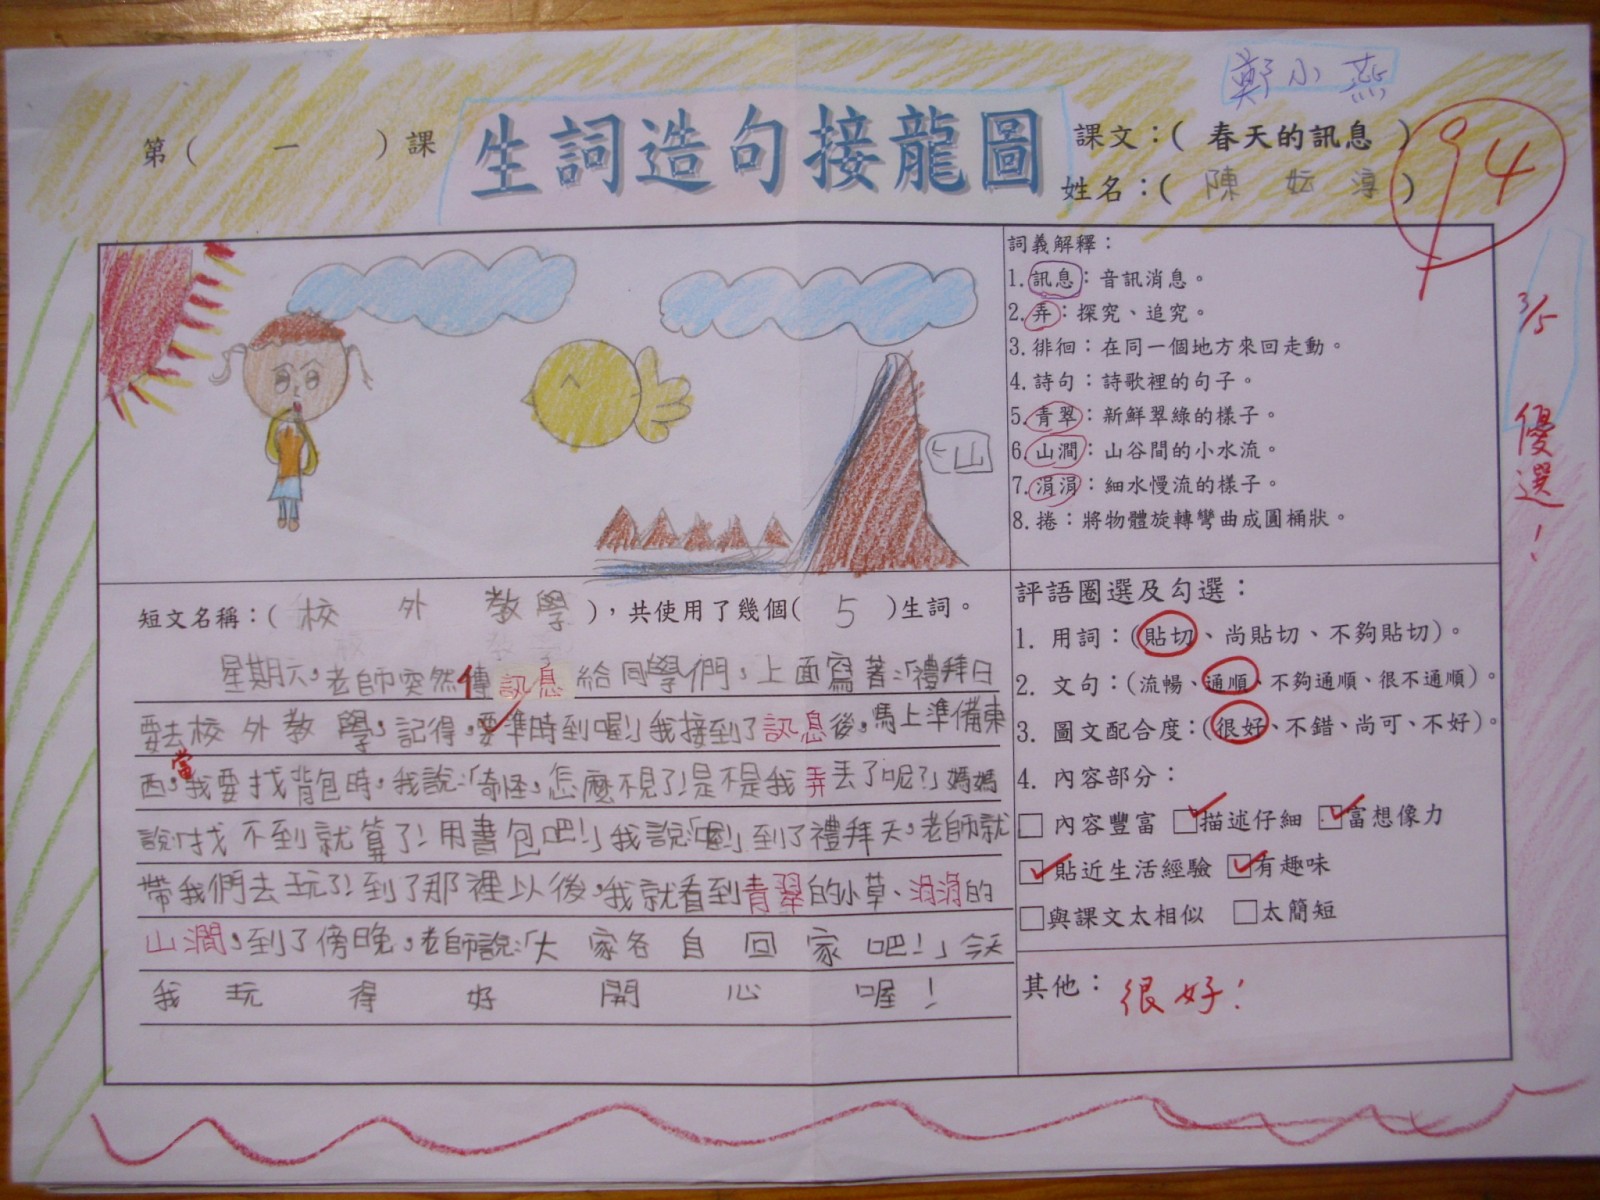 鄭小燕
第( 一 )課
生詞造句接龍圖
課文：( 春天的訊息 )
姓名：( 陳妘淳 )
94
3/5
優選！
山
詞義解釋：
1.訊息：音訊消息。
2.弄：探究、追究。
3.徘徊：在同一個地方來回走動。
4.詩句：詩歌裡的句子。
5.青翠：新鮮翠綠的樣子。
6.山澗：山谷間的小水流。
7.涓涓：細水慢流的樣子。
8.捲：將物體旋轉彎曲成圓桶狀。
短文名稱：( 校外教學 )，共使用了幾個( 5 )生詞。
星期六，老師突然傳訊息給同學們，上面寫著：「禮拜日
要去校外教學，記得，要準時到喔！」我接到了訊息後，馬上準備東
西，當我要找背包時，我說：「奇怪，怎麼不見了！是不是我弄丟了呢？」媽媽
說：「找不到就算了！用書包吧！」我說：「喔！」到了禮拜天，老師就
帶我們去玩了！到了那裡以後，我就看到青翠的小草、涓涓的
山澗，到了傍晚，老師說：「大家各自回家吧！」今天
我玩得好開心喔！
評語圈選及勾選：
1. 用詞：(貼切、尚貼切、不夠貼切)。
2. 文句：(流暢、通順、不夠通順、很不通順)。
3. 圖文配合度：(很好、不錯、尚可、不好)。
4. 內容部分：
□ 內容豐富 ☑描述仔細 ☑富想像力
☑貼近生活經驗 ☑有趣味
□與課文太相似 □太簡短
其他：很好！